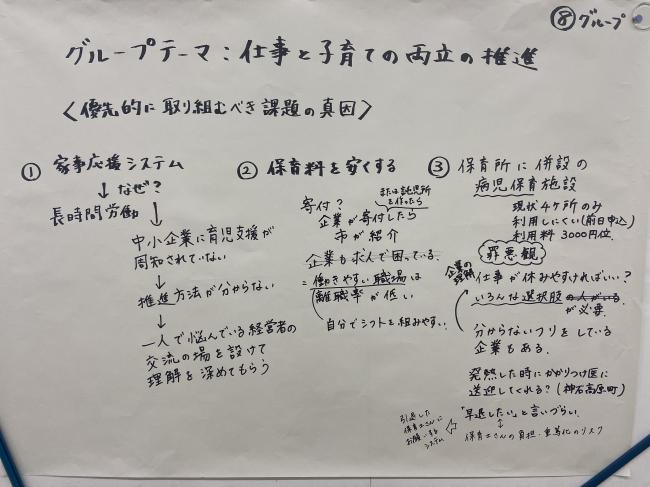 ⑧グループ
グループテーマ：仕事と子育ての両立の推進
〈優先的に取り組むべき課題の真因〉
① 家事応援システム
↓なぜ？
長時間労働
↓
中小企業に育児支援が
周知されていない
↓
推進方法が分からない
↓
一人で悩んでいる経営者の
交流の場を設けて
理解を深めてもらう
② 保育料を安くする
寄付？
または託児所
を作ったら
企業が寄付したら
市が紹介
企業も求人で困っている。
＝働きやすい職場は
離職率が低い
自分でシフトを組みやすい。
③ 保育所に併設の
病児保育施設
現状4ケ所のみ
利用しにくい(前日申込)
利用料 3000円位.
罪悪観
企業の
理解
仕事が休みやすければいい？
いろんな選択肢の人がいる.
が必要.
分からないフリをしている
企業もある.
発熱した時にかかりつけ医に
送迎してくれる？(神石高原町)
「早退したい」と言いづらい
↕
保育士さんの負担・重篤化のリスク
引退した
保育士さんに
お願いする
システム